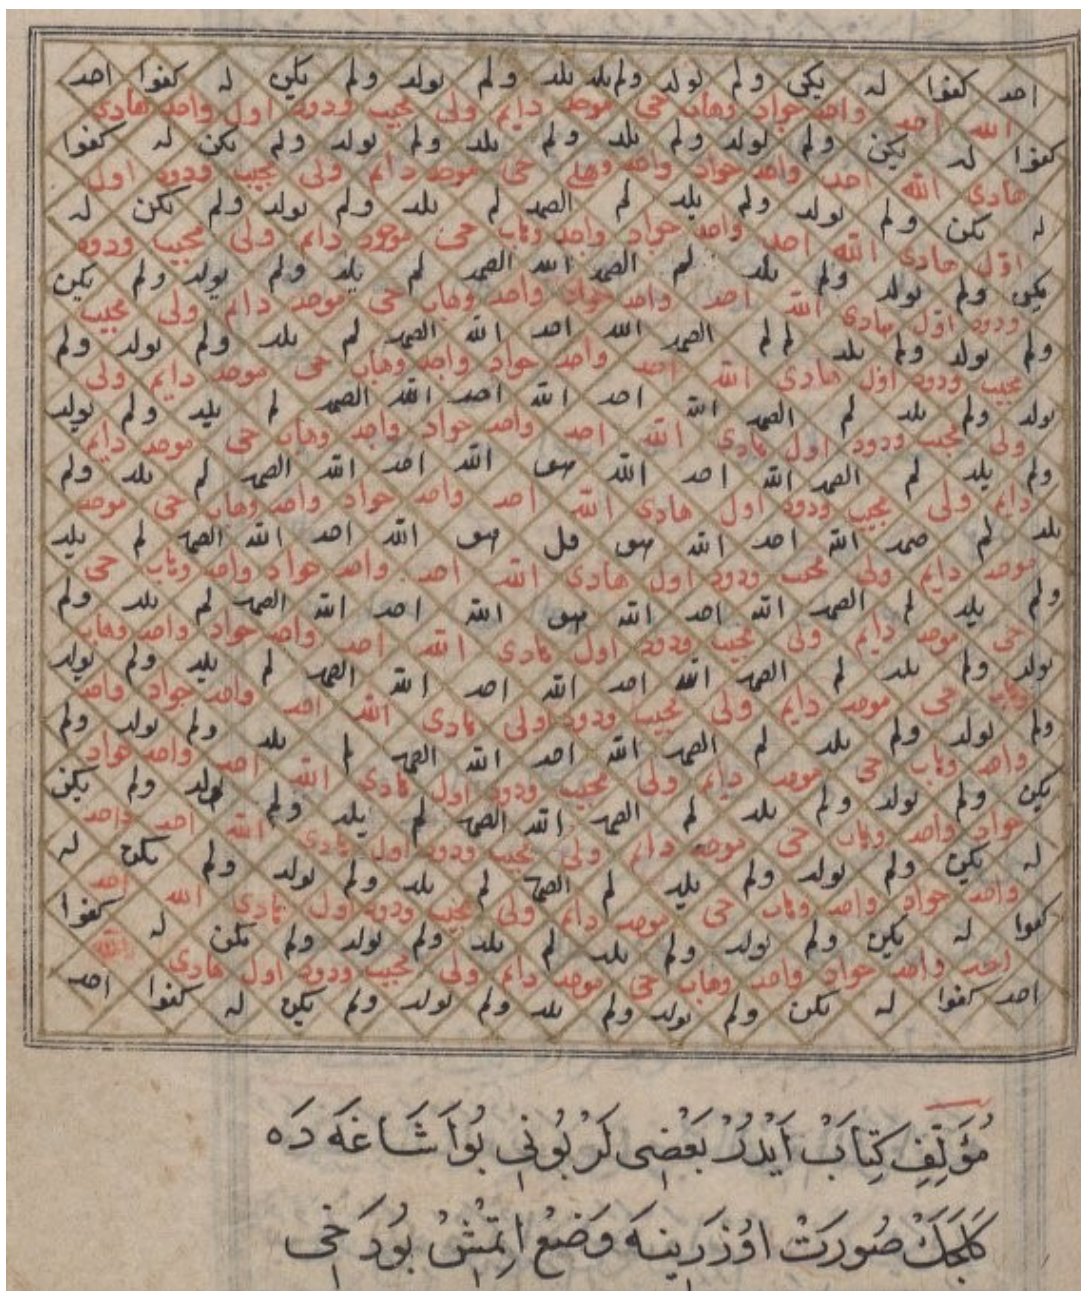 احد كفوا له يكن ولم يولد ولم يلد يلد ولم يولد ولم يكن له كفوا احد
الله احد واحد جواد وهاب حي موجد دايم ولي مجيب ودود اول واحد هادي
كفوا له يكن ولم يولد ولم يلد ولم يلد ولم يولد ولم يكن له كفوا
هادي الله احد واحد جواد واحد وهاب حي موجد دايم ولي مجيب ودود اول
له يكن ولم يولد ولم يلد لم الصمد لم يلد ولم يولد ولم يكن له
اول هادي الله احد واحد جواد واجد وهاب حي موجود دايم ولي مجيب ودود
يكن ولم يولد ولم يلد لم الصمد الله الصمد لم يلد ولم يولد ولم يكن
ودود اول هادي الله احد واحد جواد واجد وهاب حي موجد دايم ولي مجيب
ولم يولد ولم يلد لم لم الصمد الله احد الله الصمد لم يلد ولم يولد ولم
مجيب ودود اول هادي الله احد واحد جواد واجد وهاب حي موجد دايم ولي
يولد ولم يلد لم الصمد الله احد الله احد الله الصمد لم يلد ولم يولد
ولي مجيب ودود اول هادي الله احد واحد جواد واجد وهاب حي موجد دايم
ولم يلد لم الصمد الله احد الله هو الله احد الله الصمد لم يلد ولم
دايم ولي مجيب ودود اول هادي الله احد واحد جواد واجد وهاب حي موجد
يلد لم صمد الله احد الله هو قل هو الله احد الله الصمد لم يلد
موجد دايم ولي مجيب ودود اول هادي الله احد واحد جواد واجد وهاب حي
ولم يلد لم الصمد الله احد الله هو الله احد الله الصمد لم يلد ولم
حي موجد دايم ولي مجيب ودود اول هادي الله احد واحد جواد واجد وهاب
يولد ولم يلد لم الصمد الله احد الله احد الله الصمد لم يلد ولم يولد
وهاب حي موجد دايم ولي مجيب ودود اول هادي الله احد واحد جواد واجد
ولم يولد ولم يلد لم الصمد الله احد الله الصمد لم يلد ولم يولد ولم
واجد وهاب حي موجد دايم ولي مجيب ودود اول هادي الله احد واحد جواد
يكن ولم يولد ولم يلد لم الصمد الله الصمد لم يلد ولم يولد ولم يكن
جواد واجد وهاب حي موجد دايم ولي مجيب ودود اول هادي الله احد واحد
له يكن ولم يولد ولم يلد لم الصمد لم يلد ولم يولد ولم يكن له
واحد جواد واجد وهاب حي موجد دايم ولي مجيب ودود اول هادي الله احد
كفوا له يكن ولم يولد ولم يلد لم يلد ولم يولد ولم يكن له كفوا
احد واحد جواد واجد وهاب حي موجد دايم ولي مجيب ودود اول هادي الله
احد كفوا له يكن ولم يولد ولم يلد ولم يولد ولم يكن له كفوا احد
مُؤَلِّفِ كِتَابْ اَيْدُرْ بَعْضِى لَرْ بُونِى بُوآشَاغَه دَه
كَلَجَكْ صُورَتْ اوُزَرِينَه وَضْعْ اِتْمِشْ بُودَخِى